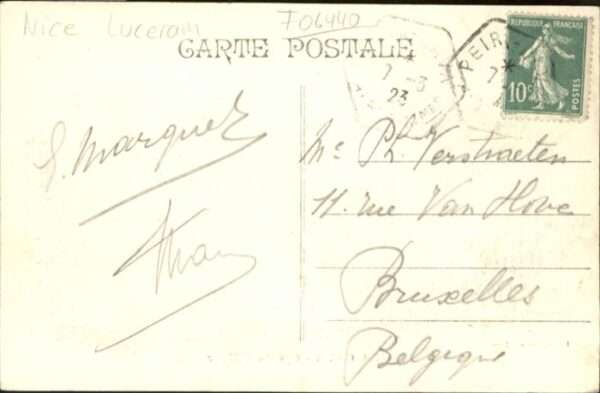 Nice Luceram F06440
CARTE POSTALE
REPUBLIQUE FRANÇAISE
10c
POSTES
PEIR
7
7 - 3
23
Marquet
Mr Ph. Verstraeten
11. rue Van Hove
Bruxelles
Belgique